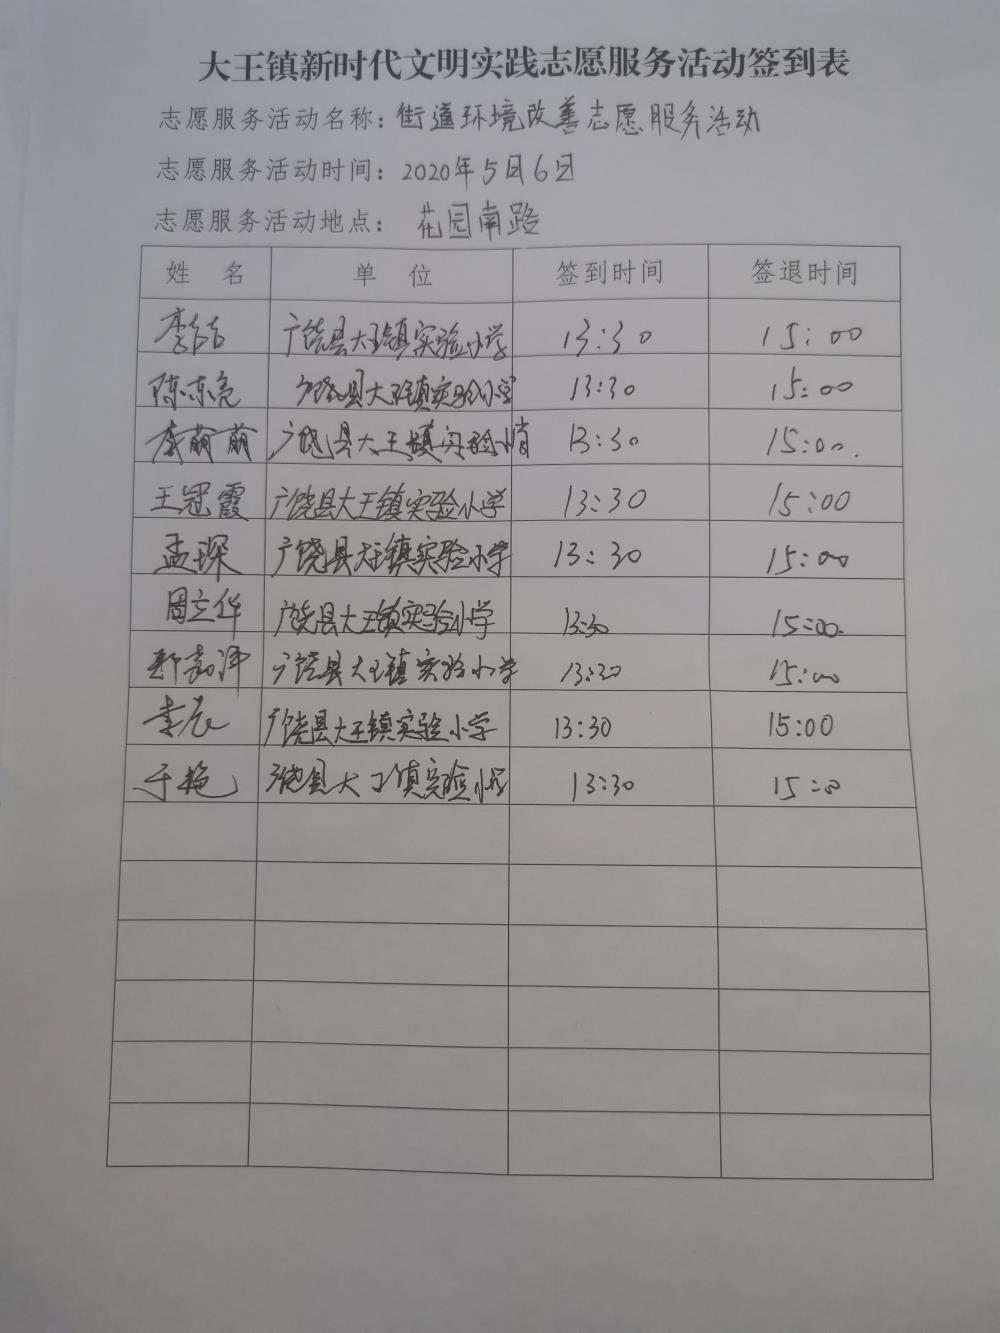 大王镇新时代文明实践志愿服务活动签到表
志愿服务活动名称：街道环境改善志愿服务活动
志愿服务活动时间：2020年5月6日
志愿服务活动地点：花园南路
姓 名 单 位 签到时间 签退时间
李 广饶县大王镇实验小学 13:30 15:00
陈东亮 广饶县大王镇实验小学 13:30 15:00
李萌萌 广饶县大王镇实验小学 13:30 15:00.
王冠霞 广饶县大王镇实验小学 13:30 15:00
孟琛 广饶县大王镇实验小学 13:30 15:00
周立华 广饶县大王镇实验小学 13:30 15:00.
广饶县大王镇实验小学 13:30 15:00
李辰 广饶县大王镇实验小学 13:30 15:00
于艳 广饶县大王镇实验小学 13:30 15:00